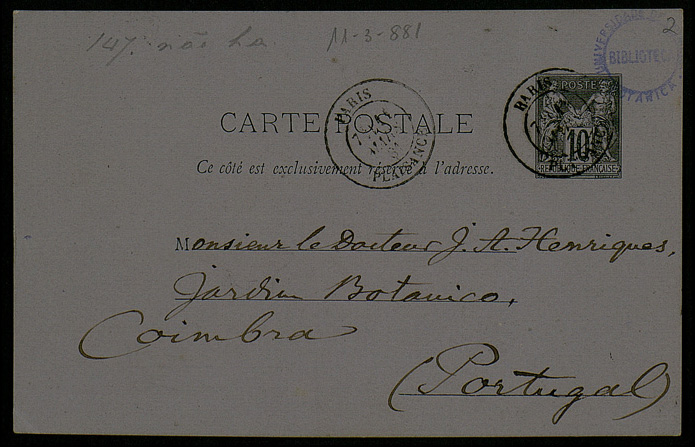 147. não ha
11-3-881
2
BIBLIOTECA
PARIS
PLAISANCE
PARIS
POSTES
10
REPUBLIQUE FRANÇAISE
CARTE POSTALE
Ce côté est exclusivement réservé à l'adresse.
Monsieur le Docteur J. A. Henriques,
Jardim Botanico,
Coimbra
(Portugal)